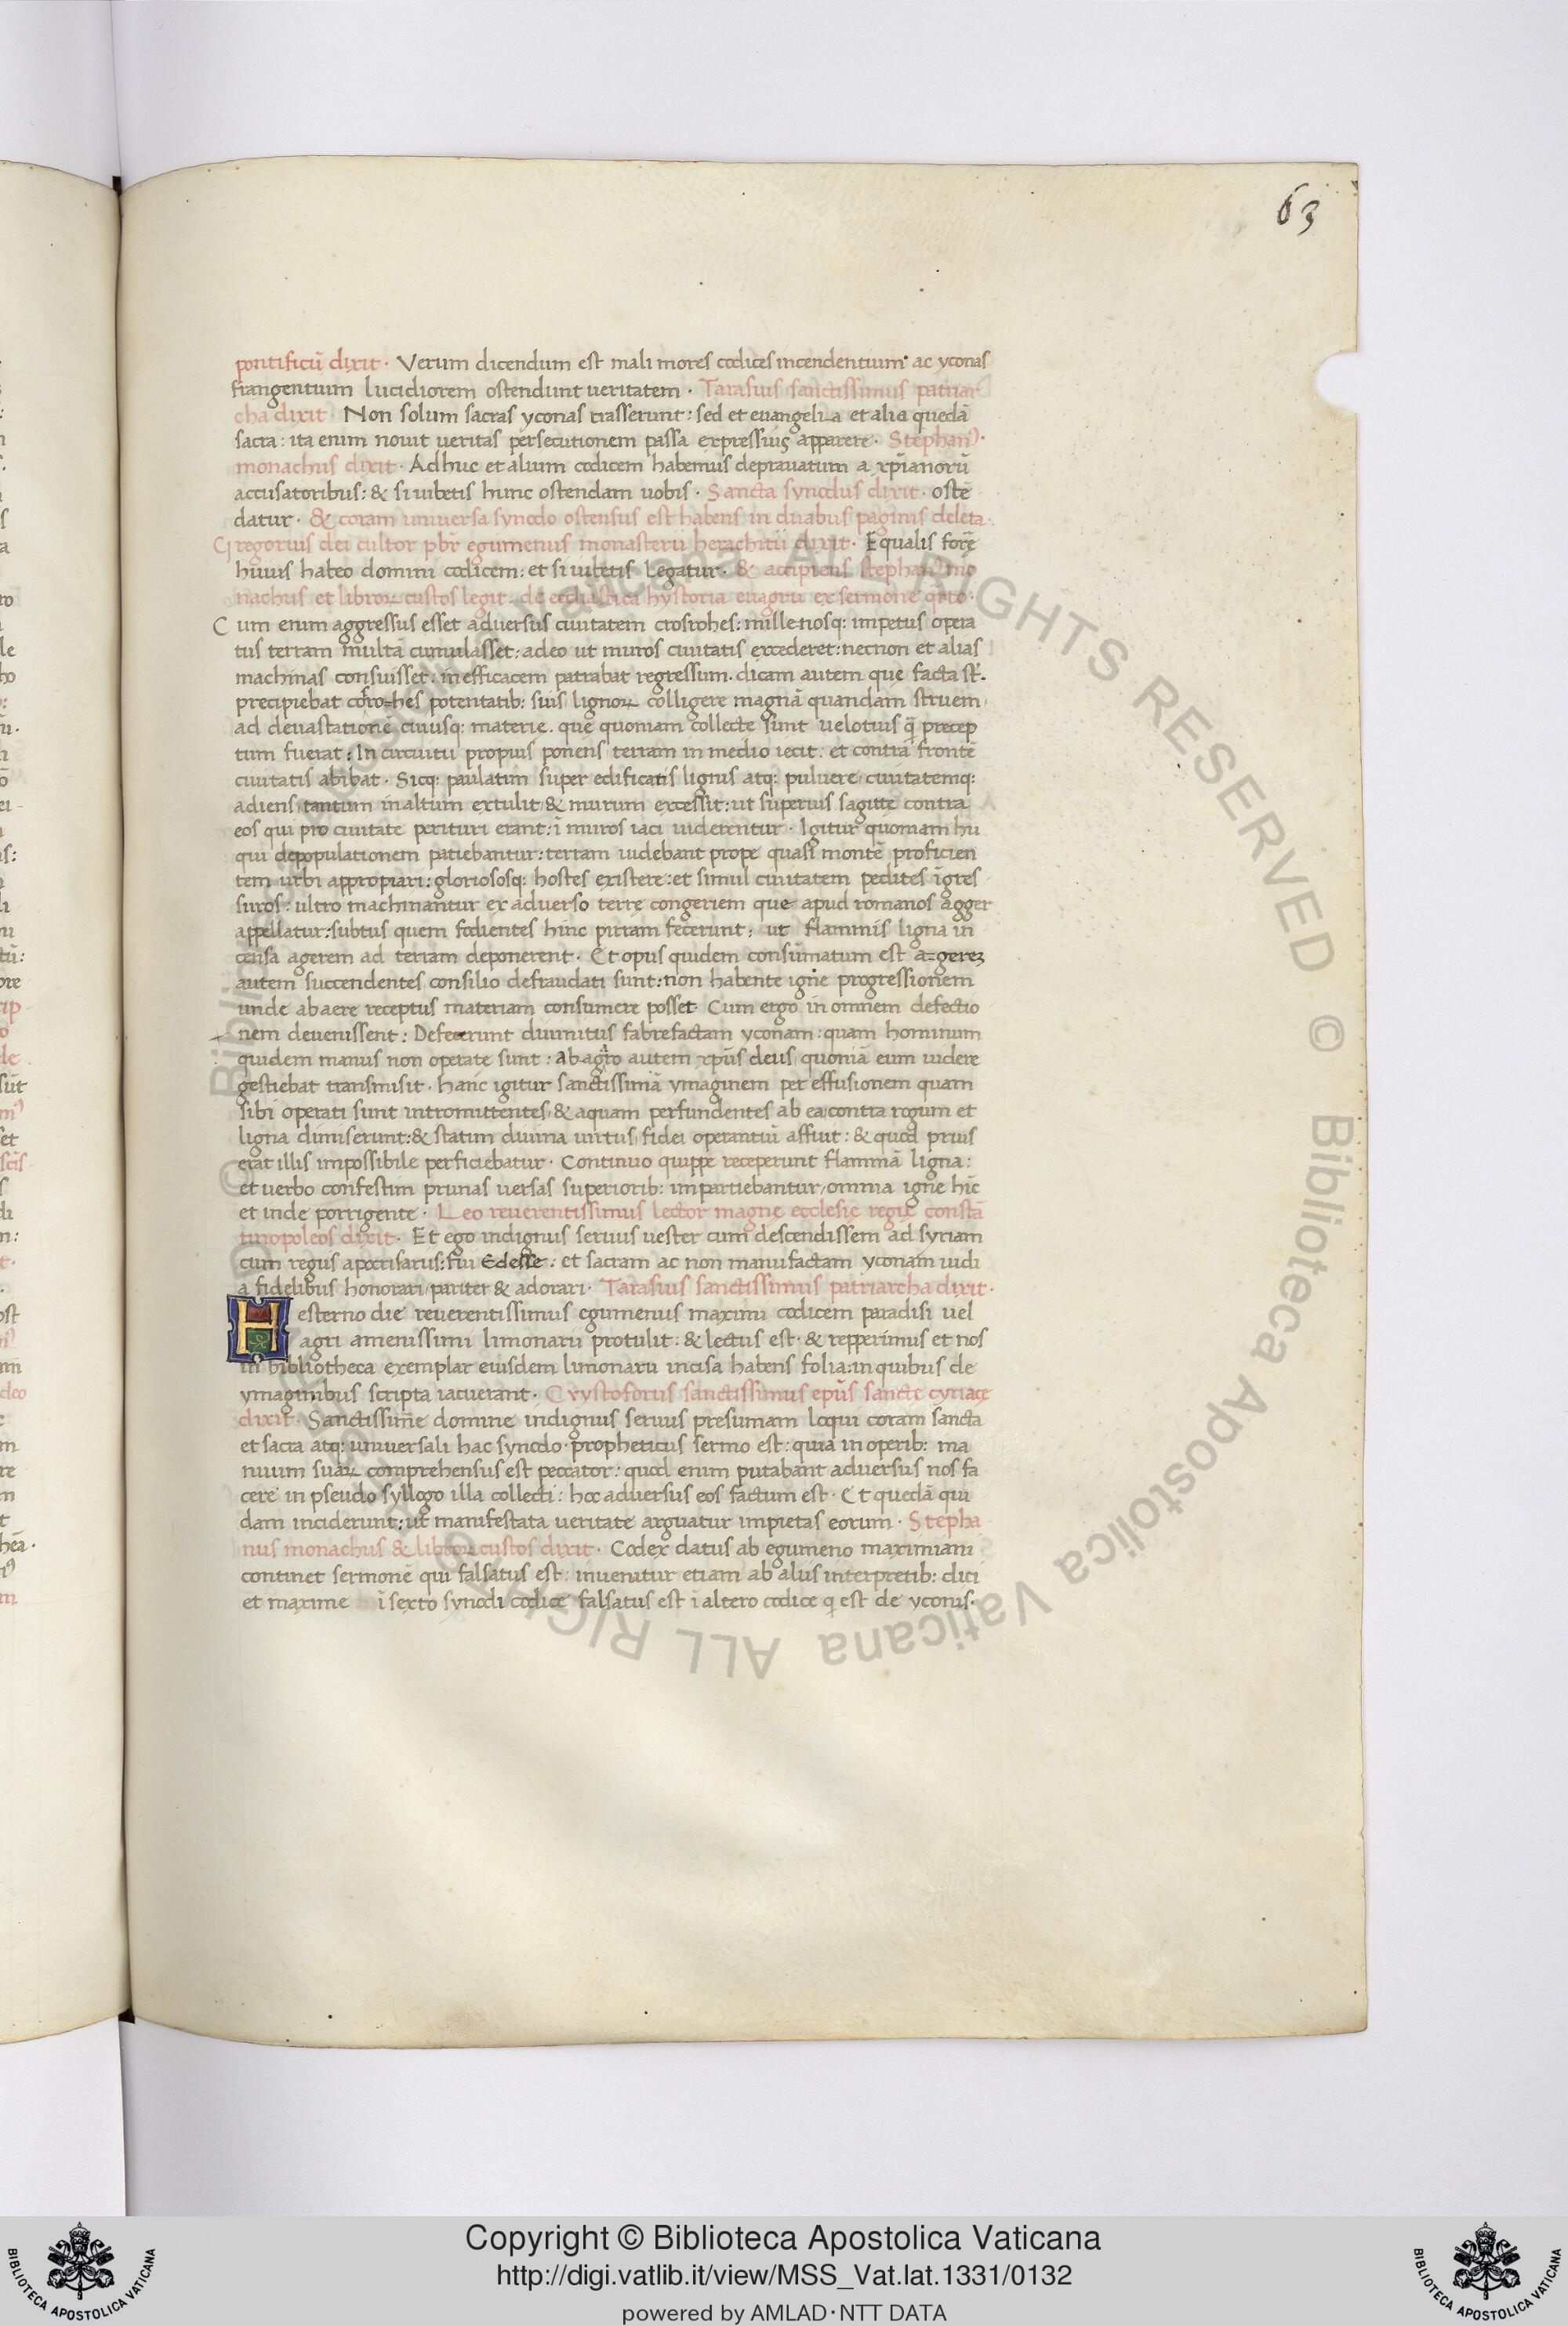 63
pontificũ dixit · Verum dicendum est mali mores codices incendentium · ac yconas
frangentium lucidiorem ostendunt ueritatem · Tarasius sanctissimus patriar
cha dixit · Non solum sacras yconas rasserunt : sed et euangelia et alia quedã
sacra : ita enim nouit ueritas persecutionem passa expressius apparere · Stephanꝰ ·
monachus dixit · Adhuc et alium codicem habemus deprauatum a xp̄ianorũ
accusatoribus : & si iubetis hunc ostendam uobis · Sancta synodus dixit · ostẽ
datur · & coram uniuersa synodo ostensus est habens in duabus paginis deleta ·
Gregorius dei cultor pbr̄ egumenus monasterii dixit · Equalis forẽ
huius habeo domini codicem : et si iubetis legatur · & accipiens stephanꝰ mo
nachus et libroꝝ custos legit · de eccl̄iastica hystoria euagrii ex sermone q̄rto ·
Cum enim aggressus esset aduersus ciuitatem cosrohes : millenosq; impetus opera
tus terram multã cumulasset : adeo ut muros ciuitatis excederet : necnon et alias
machinas consuisset · inefficacem patrabat regressum · dicam autem que facta st̄ ·
precipiebat potentatib; suis lignoꝝ colligere magnã quandam struem
ad deuastationẽ cuiusq; materie · que quoniam collecte sunt uelotius q̄ precep
tum fuerat : In circuitu propius ponens terram in medio iecit · et contra frontẽ
ciuitatis abibat · Sicq; paulatim super edificatis lignis atq; puluere ciuitatemq;
adiens tantum in altum extulit & murum excessit : ut superius sagitte contra
eos qui pro ciuitate perituri erant : ĩ muros iaci uiderentur · Igitur quoniam hii
qui depopulationem patiebantur : terram uidebant prope quasi montẽ proficien
tem urbi appropiari : gloriososq; hostes existere : et simul ciuitatem pedites ĩgres
suros : ultro machinantur ex aduerso terre congeriem que apud romanos agger
appellatur : subtus quem fodientes hinc piram fecerunt : ut flammis ligna in
censa agerem ad terram deponerent · Et opus quidem consũmatum est a=gerez
autem succendentes consilio defraudati sunt : non habente igne progressionem
unde ab aere receptus materiam consumere posset · Cum ergo in omnem defectio
nem deuenissent : Defererunt diuinitus fabrefactam yconam : quam hominum
quidem manus non operate sunt : autem xp̄us deus quoniã eum uidere
gestiebat transmisit · hanc igitur sanctissimã ymaginem per effusionem quam
sibi operati sunt intromittentes · & aquam perfundentes ab ea contra rogum et
ligna dimiserunt : & statim diuina uirtus fidei operantiũ affuit : & quod prius
erat illis impossibile perficiebatur · Continuo quippe receperunt flammã ligna :
et uerbo confestim prunas uersas superiorib; impartiebantur omnia igne hĩc
et inde porrigente · Leo reuerentissimus lector magne ecclesie regie constã
tinopoleos dixit · Et ego indignus seruus uester cum descendissem ad syriam
cum regiis apocrisariis : fui Edesse : et sacram ac non manufactam yconam uidi
a fidelibus honorari pariter & adorari · Tarasius sanctissimus patriarcha dixit ·
Hesterno die reuerentissimus egumenus maximi codicem paradisi uel
agri amenissimi limonarii protulit : & lectus est · & repperimus et nos
in bibliotheca exemplar eiusdem limonarii incisa habens folia : in quibus de
ymaginibus scripta iacuerant · Crystoforus sanctissimus ep̄us sancte cyriace
dixit · Sanctissime domine indignus seruus presumam loqui coram sancta
et sacra atq; uniuersali hac synodo · propheticus sermo est : quia in operib; ma
nuum suaꝝ comprehensus est peccator : quod enim putabant aduersus nos fa
cere in pseudo syllogo illa collecti : hoc aduersus eos factum est · Et quedã qui
dam inciderunt : ut manifestata ueritate arguatur impietas eorum · Stepha
nus monachus & libroꝝ custos dixit · Codex datus ab egumeno maximiani
continet sermonẽ qui falsatus est : inuenitur etiam ab aliis interpretib; dici
et maxime ĩ sexto synodi codice falsatus est ĩ altero codice q est de yconis ·
Copyright © Biblioteca Apostolica Vaticana
http://digi.vatlib.it/view/MSS_Vat.lat.1331/0132
powered by AMLAD·NTT DATA